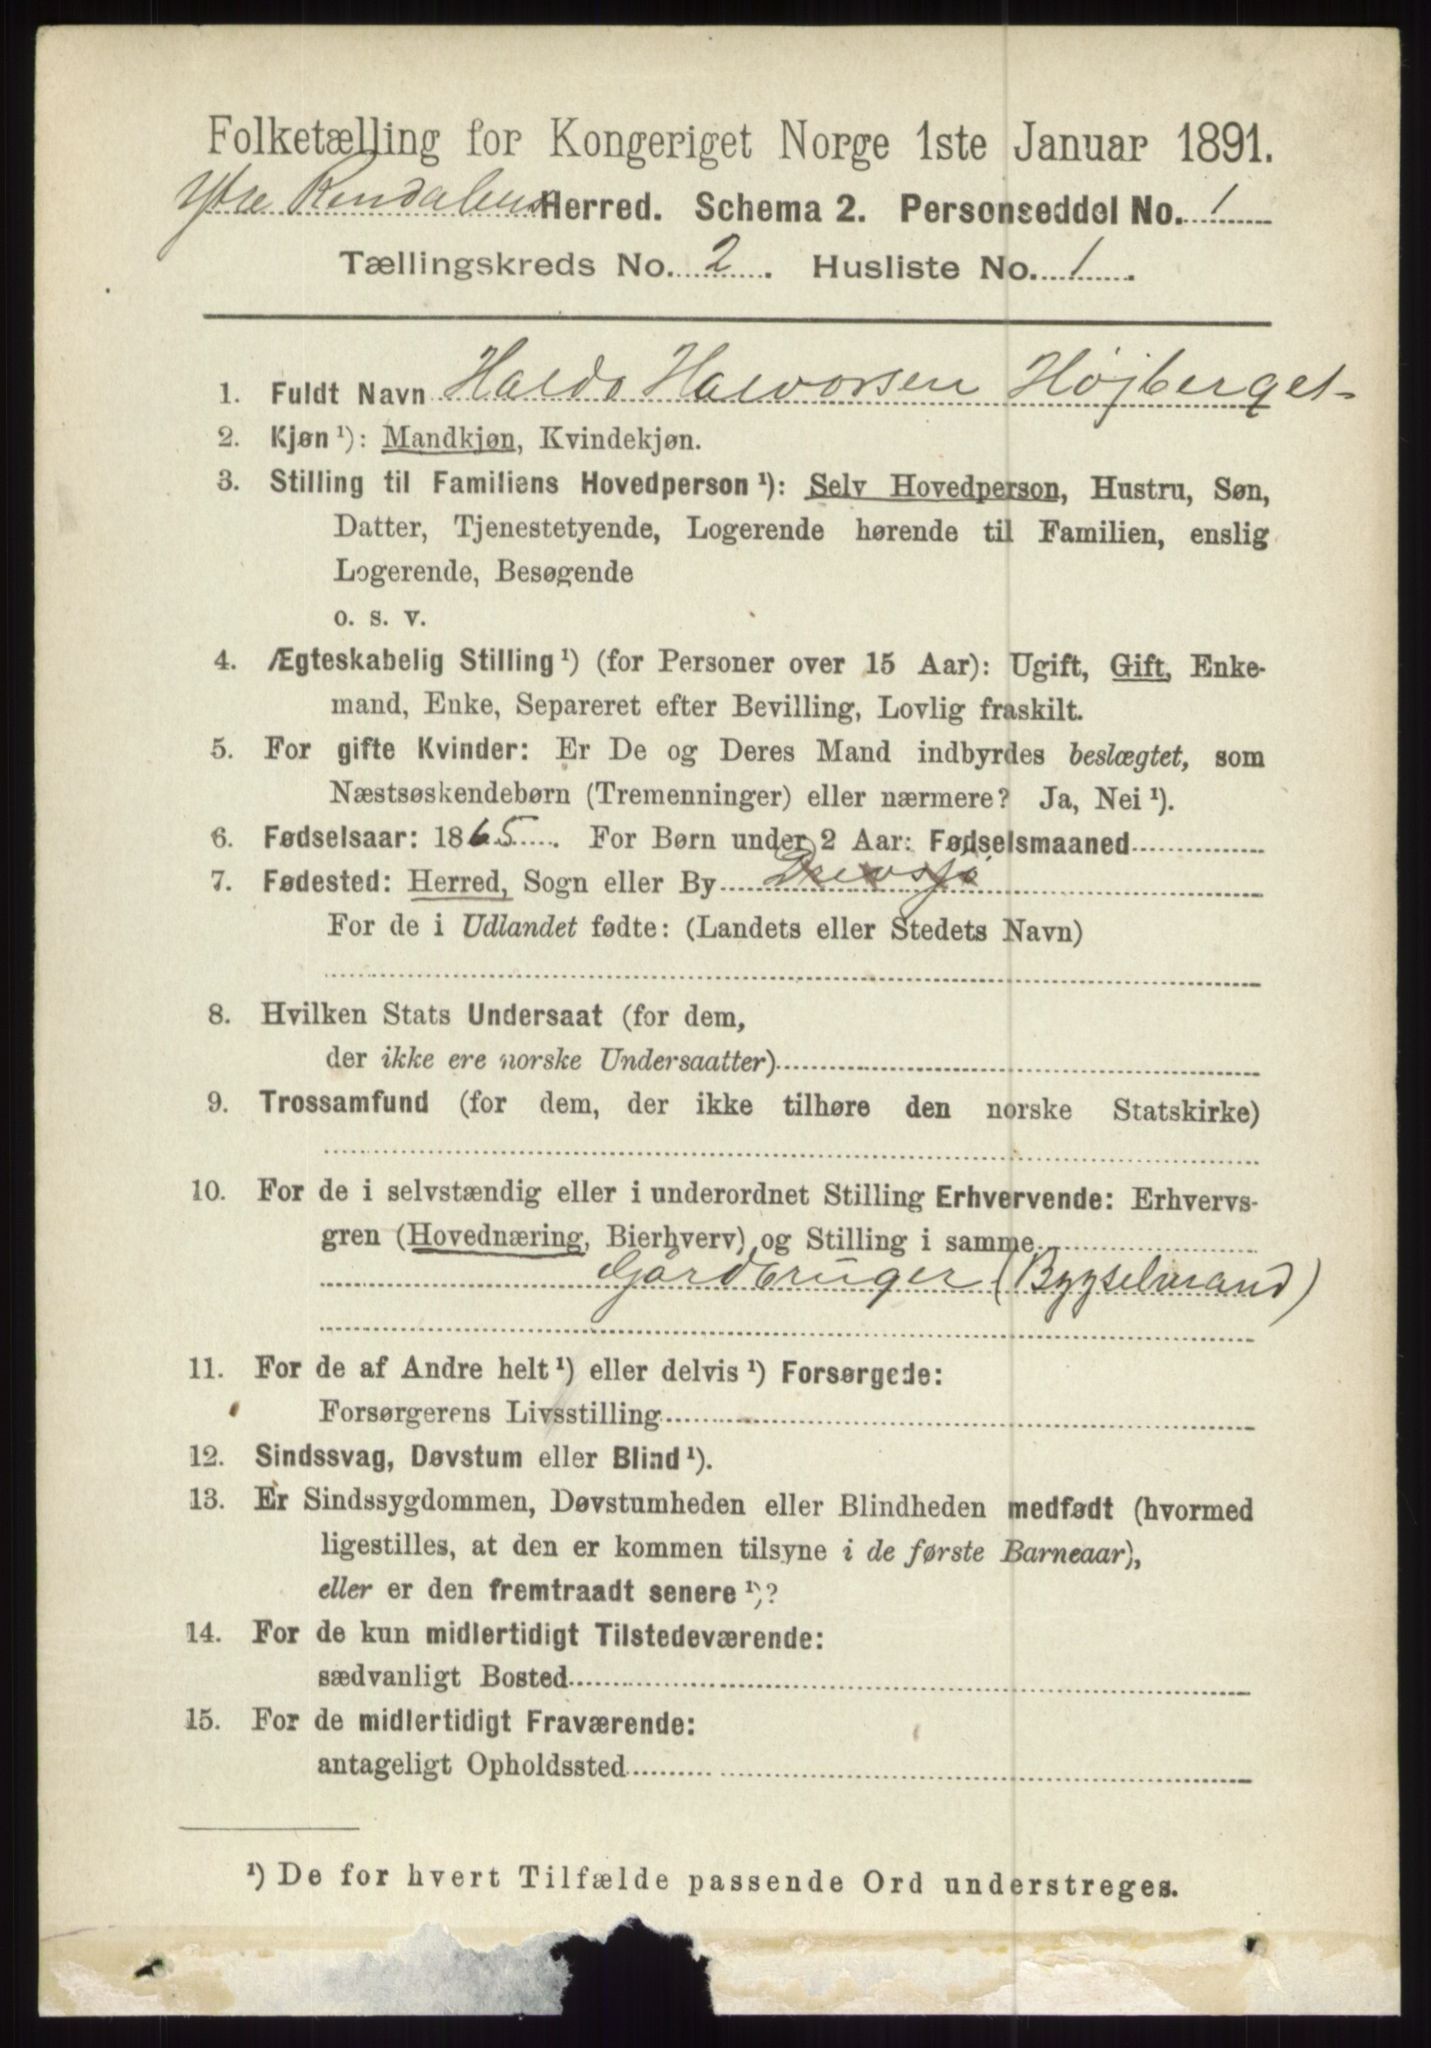 Folketælling for Kongeriget Norge 1ste Januar 1891.
Ytre Rendalens Herred. Schema 2. Personseddel No. 1
Tællingskreds No. 2. Husliste No. 1.
1. Fuldt Navn Haldo Halvorsen Højberget
2. Kjøn ¹): Mandkjøn, Kvindekjøn.
3. Stilling til Familiens Hovedperson ¹): Selv Hovedperson, Hustru, Søn,
Datter, Tjenestetyende, Logerende hørende til Familien, enslig
Logerende, Besøgende
o. s. v.
4. Ægteskabelig Stilling ¹) (for Personer over 15 Aar): Ugift, Gift, Enke-
mand, Enke, Separeret efter Bevilling, Lovlig fraskilt.
5. For gifte Kvinder: Er De og Deres Mand indbyrdes beslægtet, som
Næstsøskendebørn (Tremenninger) eller nærmere? Ja, Nei ¹).
6. Fødselsaar: 1865. For Børn under 2 Aar: Fødselsmaaned
7. Fødested: Herred, Sogn eller By Drevsjø
For de i Udlandet fødte: (Landets eller Stedets Navn)
8. Hvilken Stats Undersaat (for dem,
der ikke ere norske Undersaatter)
9. Trossamfund (for dem, der ikke tilhøre den norske Statskirke)
10. For de i selvstændig eller i underordnet Stilling Erhvervende: Erhvervs-
gren (Hovednæring, Bierhverv) og Stilling i samme
Gårdbruger (Bygselmand)
11. For de af Andre helt ¹) eller delvis ¹) Forsørgede:
Forsørgerens Livsstilling
12. Sindssvag, Døvstum eller Blind ¹).
13. Er Sindssygdommen, Døvstumheden eller Blindheden medfødt (hvormed
ligestilles, at den er kommen tilsyne i de første Barneaar),
eller er den fremtraadt senere ¹)?
14. For de kun midlertidigt Tilstedeværende:
sædvanligt Bosted
15. For de midlertidigt Fraværende:
antageligt Opholdssted
¹) De for hvert Tilfælde passende Ord understreges.